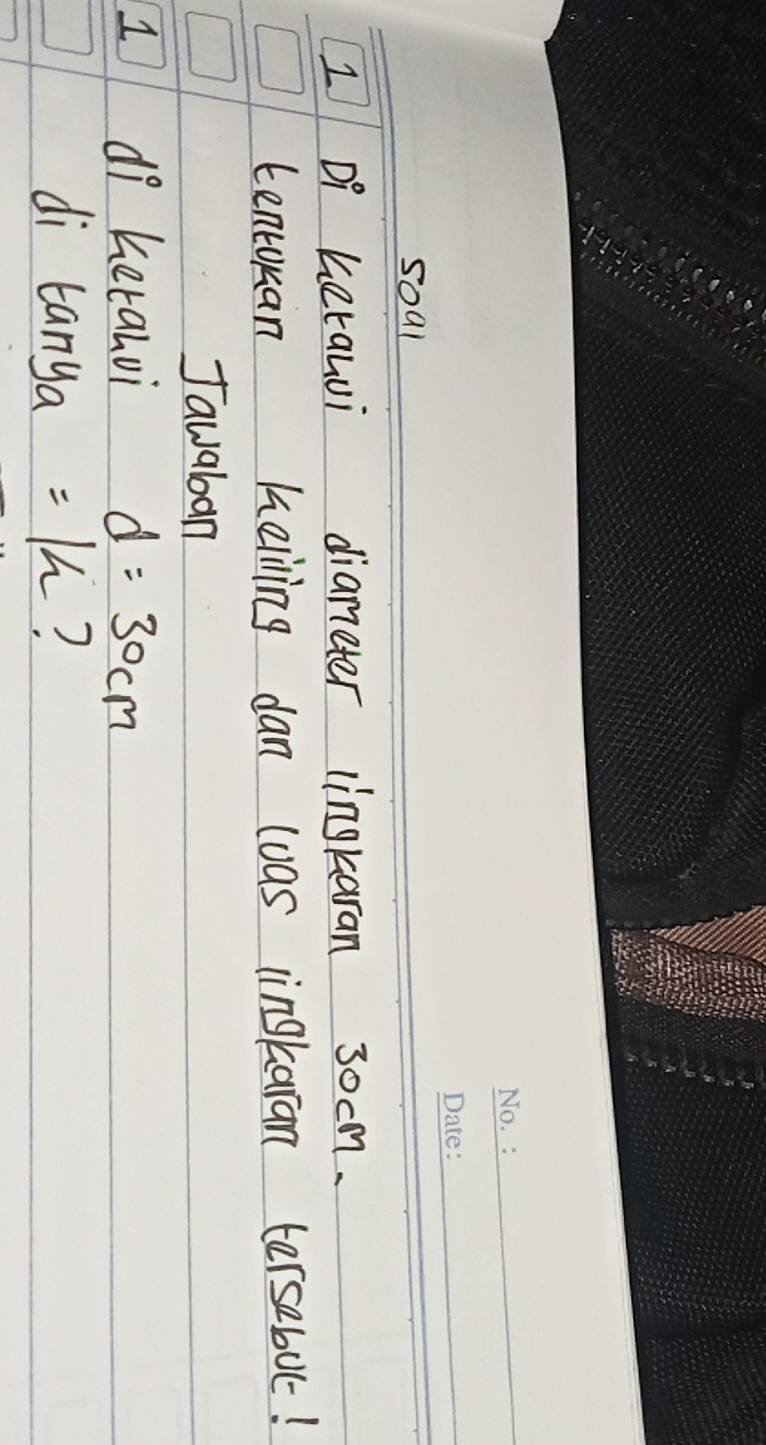 No. :
Date:
Soal
1 Di ketahui diameter lingkaran 30cm.
tentukan keliling dan luas lingkaran tersebut!
Jawaban
1 di ketahui d = 30cm
di tanya = K?